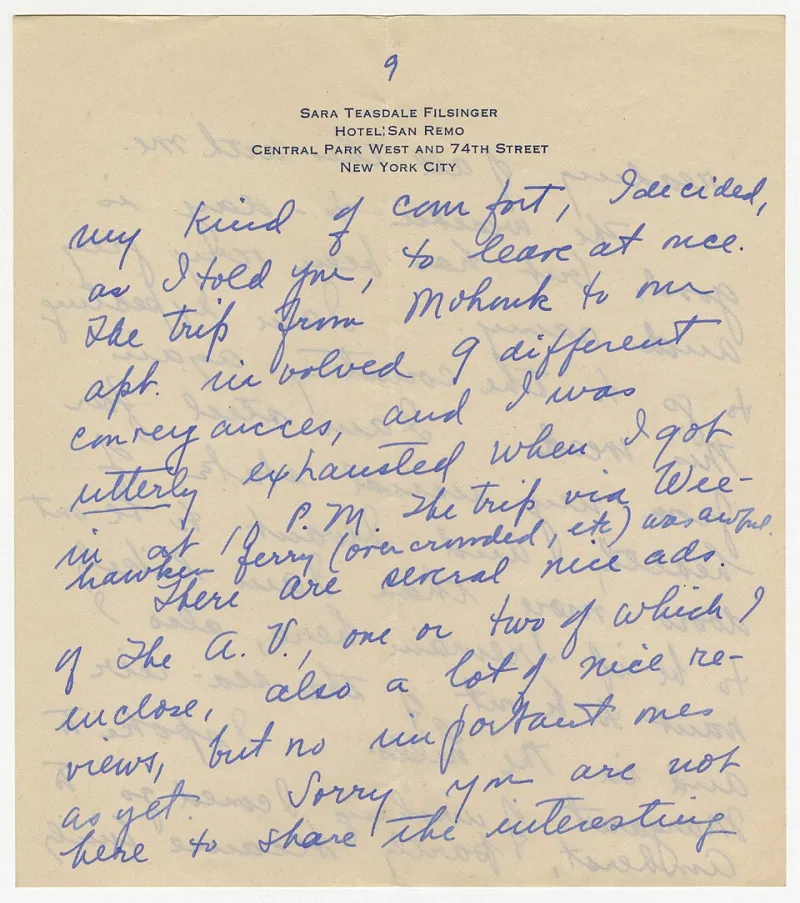 9
SARA TEASDALE FILSINGER
HOTEL SAN REMO
CENTRAL PARK WEST AND 74TH STREET
NEW YORK CITY
my kind of comfort, I decided,
as I told you, to leave at once.
The trip from Mohonk to our
apt. involved 9 different
conveyances, and I was
utterly exhausted when I got
in at 10 P.M. The trip via Wee-
hawken ferry (overcrowded, etc) was awful.
There are several nice ads.
of The A. V., one or two of which I
enclose, also a lot of nice re-
views, but no important ones
as yet. Sorry you are not
here to share the interesting